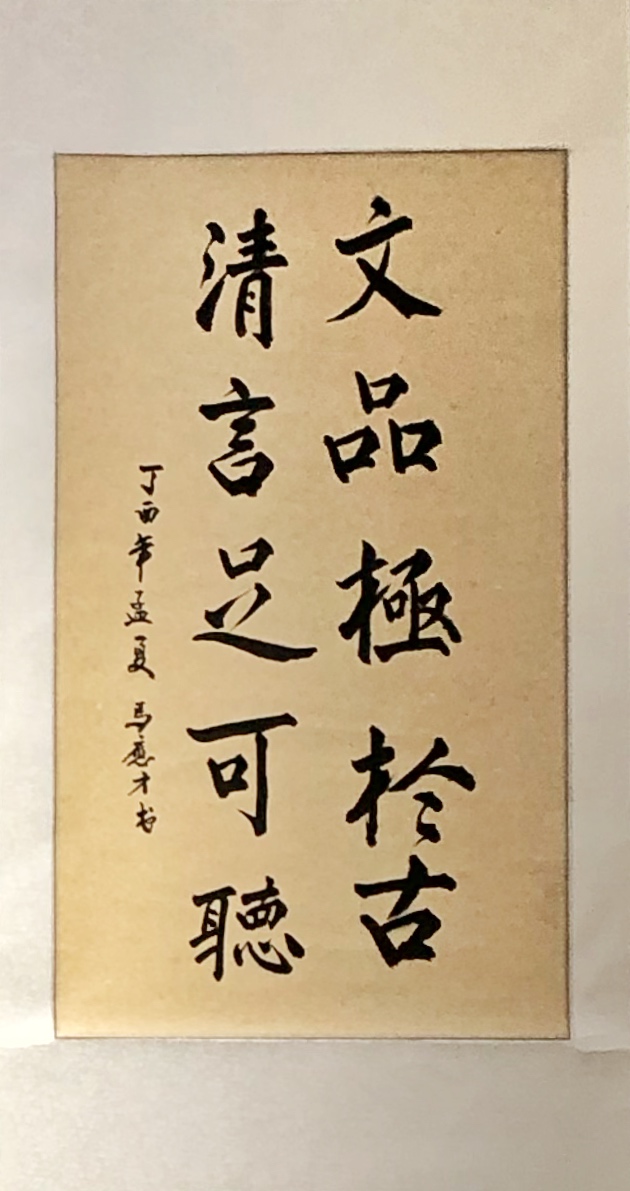 文品極於古
清言足可聽
丁酉年孟夏 馬應才书